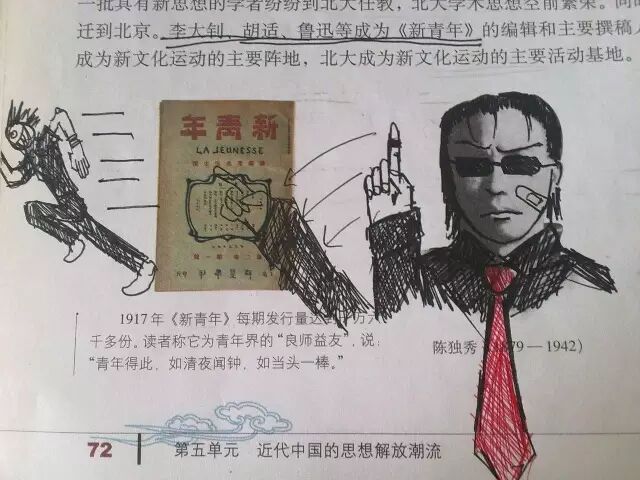 一批具有新思想的学者纷纷到北大任教，北大学术思想空前繁荣。同时
迁到北京。李大钊、胡适、鲁迅等成为《新青年》的编辑和主要撰稿人
成为新文化运动的主要阵地，北大成为新文化运动的主要活动基地。
年青新
LA JEUNESSE
1917年《新青年》每期发行量达到
千多份。读者称它为青年界的“良师益友”，说：
“青年得此，如清夜闻钟，如当头一棒。”
陈独秀 79—1942）
72 第五单元 近代中国的思想解放潮流